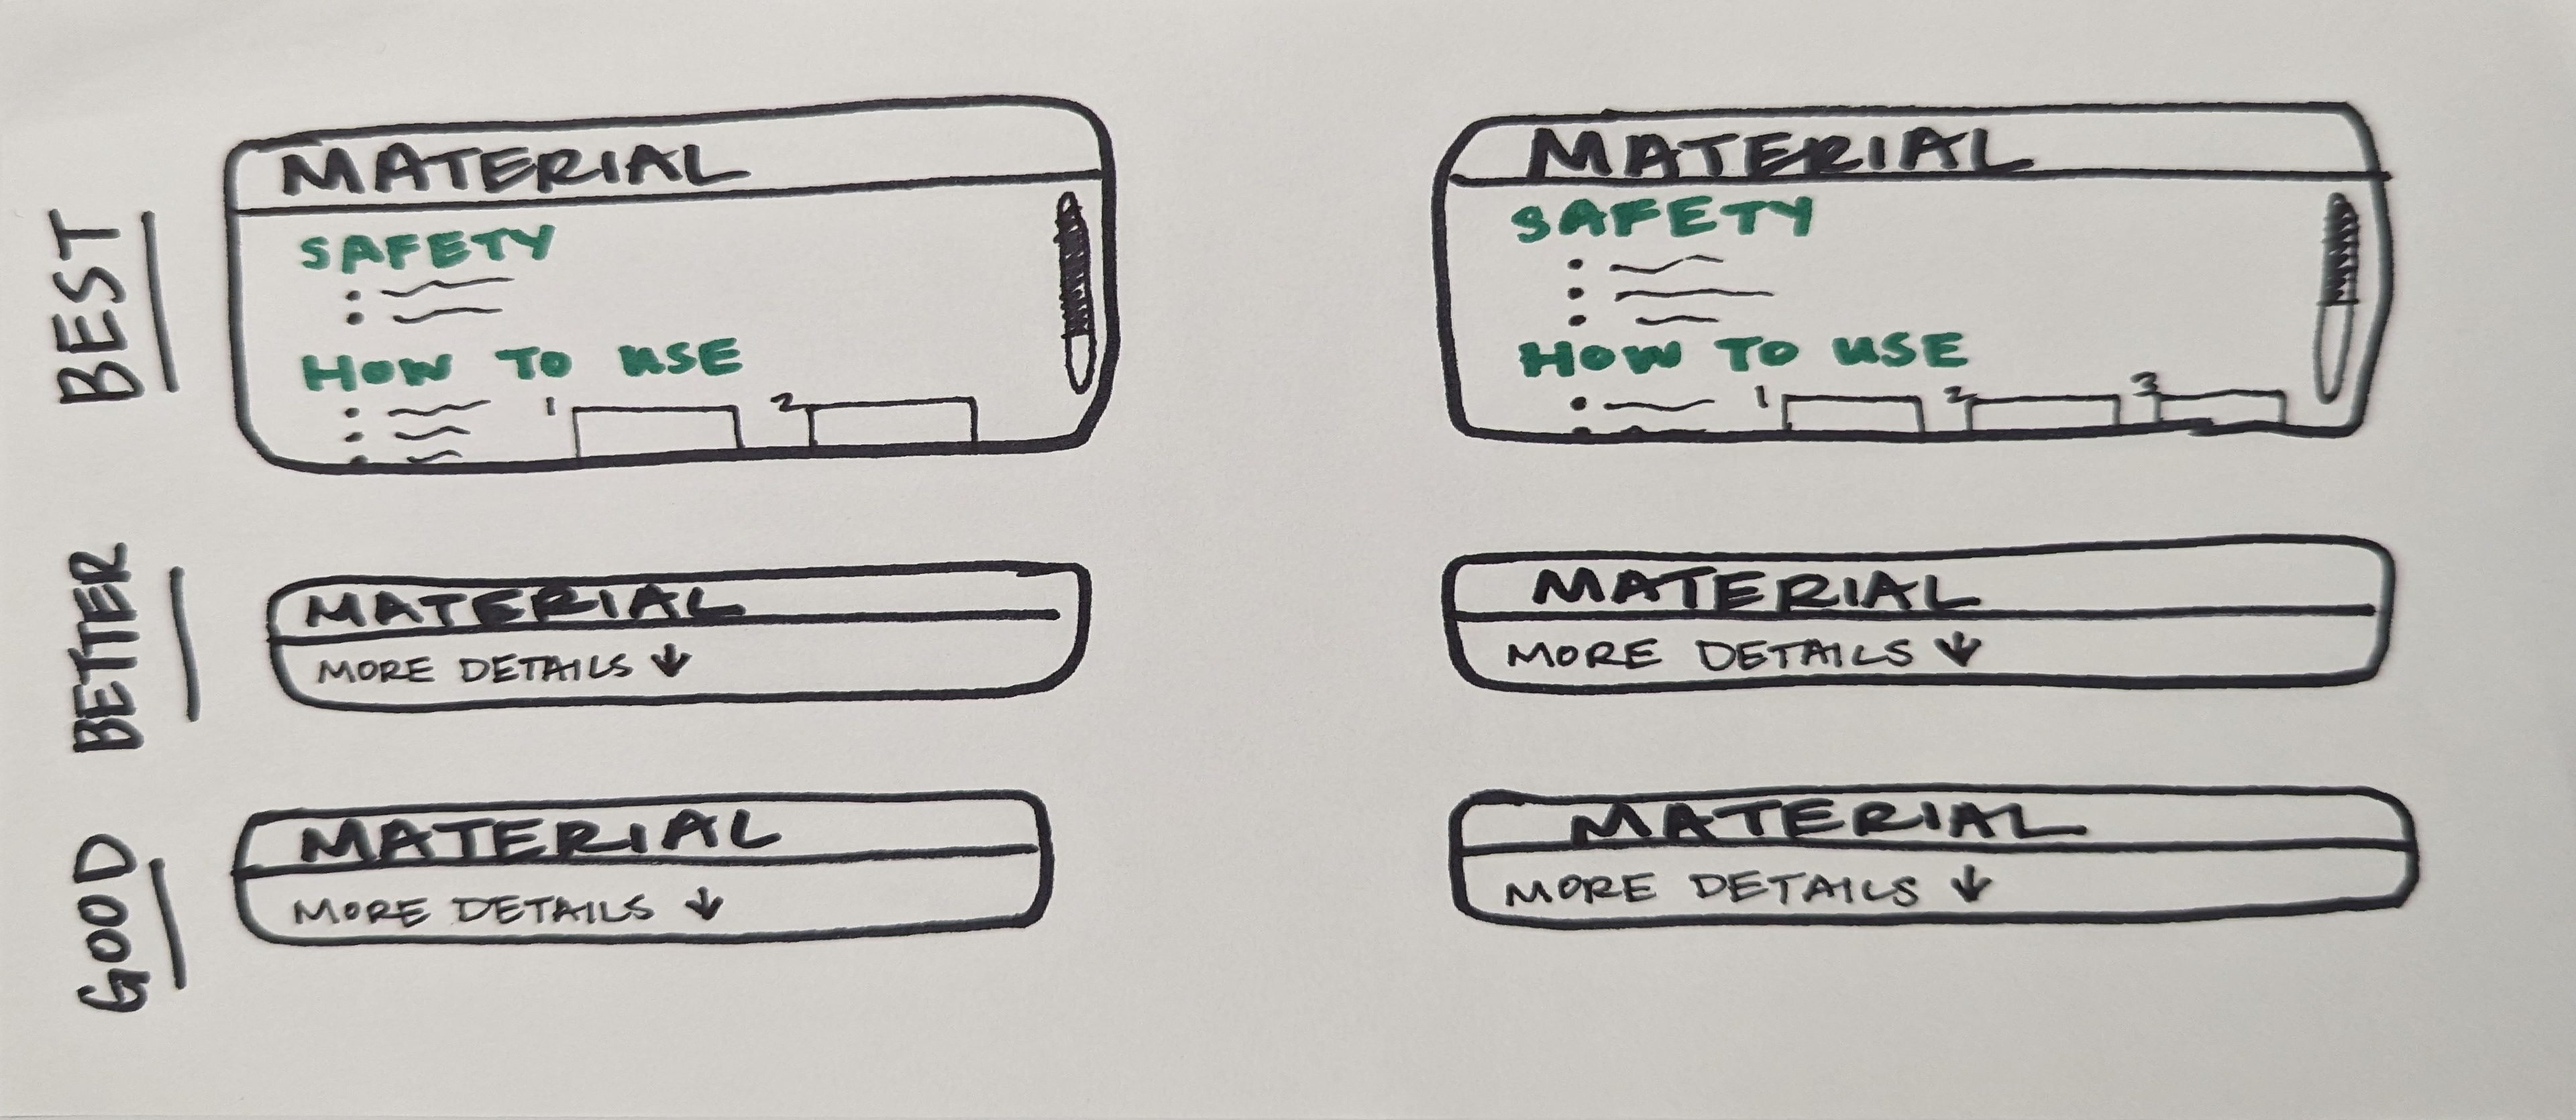 BEST
MATERIAL
SAFETY
HOW TO USE
1 2
MATERIAL
SAFETY
HOW TO USE
1 2 3
BETTER
MATERIAL
MORE DETAILS ↓
MATERIAL
MORE DETAILS ↓
GOOD
MATERIAL
MORE DETAILS ↓
MATERIAL
MORE DETAILS ↓